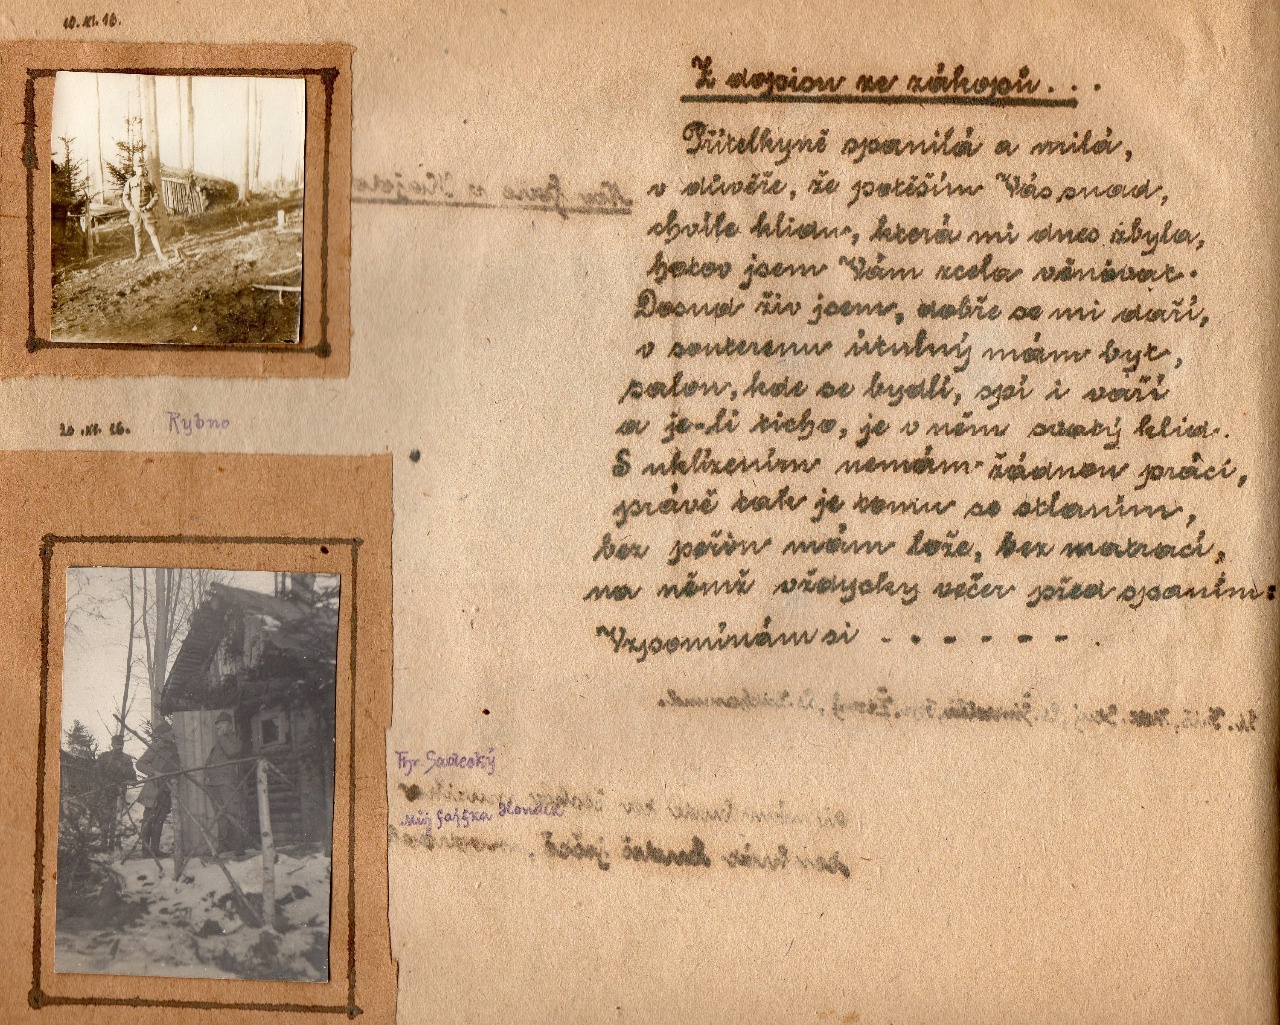 10.XI.16.
Z dopisu ze zákopů. . .
Přítelkyně spanilá a milá,
v důvěře, že potěším Vás snad,
chvíle klidu, která mi dnes zbyla,
hotov jsem Vám zcela věnovat.
Dosud živ jsem, dobře se mi daří,
v souterenu útulný mám byt,
salon, kde se bydlí, spí i vaří
a je-li ticho, je v něm svatý klid.
S uklízením nemám žádnou práci,
právě tak je tomu se stlaním,
bez peřin mám lože, bez matrací,
na němž vždycky večer před spaním:
Vzpomínám si - - - - - - .
20.XI.16. Rybno
Fhr. Sadecký
můj fajfka